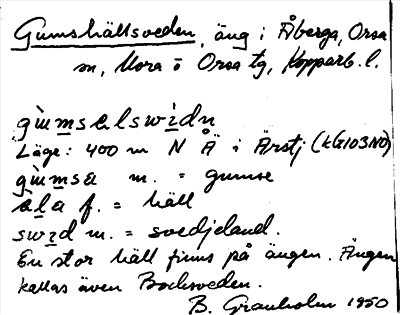 Gumshällsveden, äng i Åberga, Orsa
sn, Mora o Orsa tg, Kopparb. l.
gùmsælswìdn
Läge: 400 m N Å i Årstj (kG103NO)
gùmsa m. = gumse
æla f. = häll
swìd m. = svedjeland.
En stor häll finns på ängen. Ängen
kallas även Bocksveden.
B. Granholm 1950